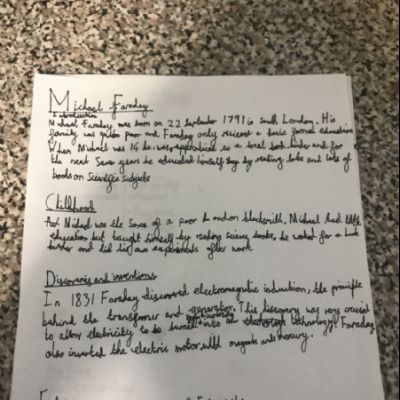 Michael Faraday
Introduction
Michael Faraday was born on 22 September 1791 in South London. His
family was quite poor and Faraday only recieved a basic formal education
When Michael was 14 he was apprenticed to a local book binder and for
the next Seven years he educated himself by reading lots and lots of
books on Scientific subjects
Childhood
Michael was the Son of a poor London blacksmith. Michael had little
education but taught himself by reading science books, he worked for a book
binder and did his own experiments after work.
Discoveries and inventions
In 1831 Faraday discovered electromagnetic induction, the principle
behind the transformer and generator. This discovery was very crucial
to allow electricity to be turned into technology. Faraday
also invented the electric motor with magnets and mercury.